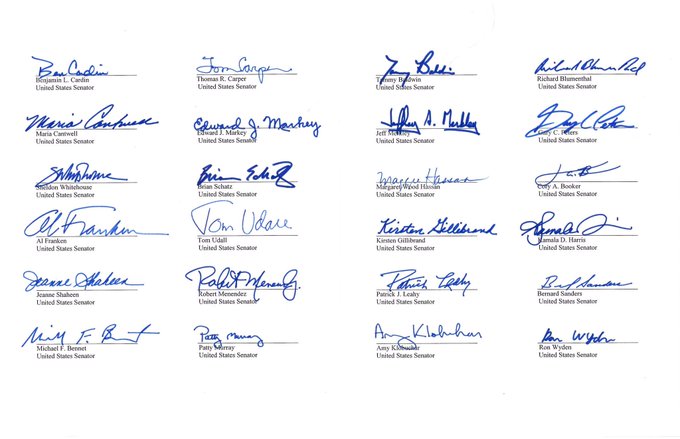 Ben Cardin
Benjamin L. Cardin
United States Senator
Tom Carper
Thomas R. Carper
United States Senator
Tammy Baldwin
Tammy Baldwin
United States Senator
Richard Blumenthal
Richard Blumenthal
United States Senator
Maria Cantwell
Maria Cantwell
United States Senator
Edward J. Markey
Edward J. Markey
United States Senator
Jeffrey A. Merkley
Jeff Merkley
United States Senator
Gary C. Peters
United States Senator
Sheldon Whitehouse
United States Senator
Brian Schatz
Brian Schatz
United States Senator
Maggie Hassan
Margaret Wood Hassan
United States Senator
Cory A. Booker
United States Senator
Al Franken
Al Franken
United States Senator
Tom Udall
Tom Udall
United States Senator
Kirsten Gillibrand
Kirsten Gillibrand
United States Senator
Kamala D. Harris
United States Senator
Jeanne Shaheen
Jeanne Shaheen
United States Senator
Robert Menendez
Robert Menendez
United States Senator
Patrick Leahy
Patrick J. Leahy
United States Senator
Sanders
Bernard Sanders
United States Senator
F. Bennet
Michael F. Bennet
United States Senator
Patty Murray
Patty Murray
United States Senator
Amy Klobuchar
Amy Klobuchar
United States Senator
Ron Wyden
Ron Wyden
United States Senator